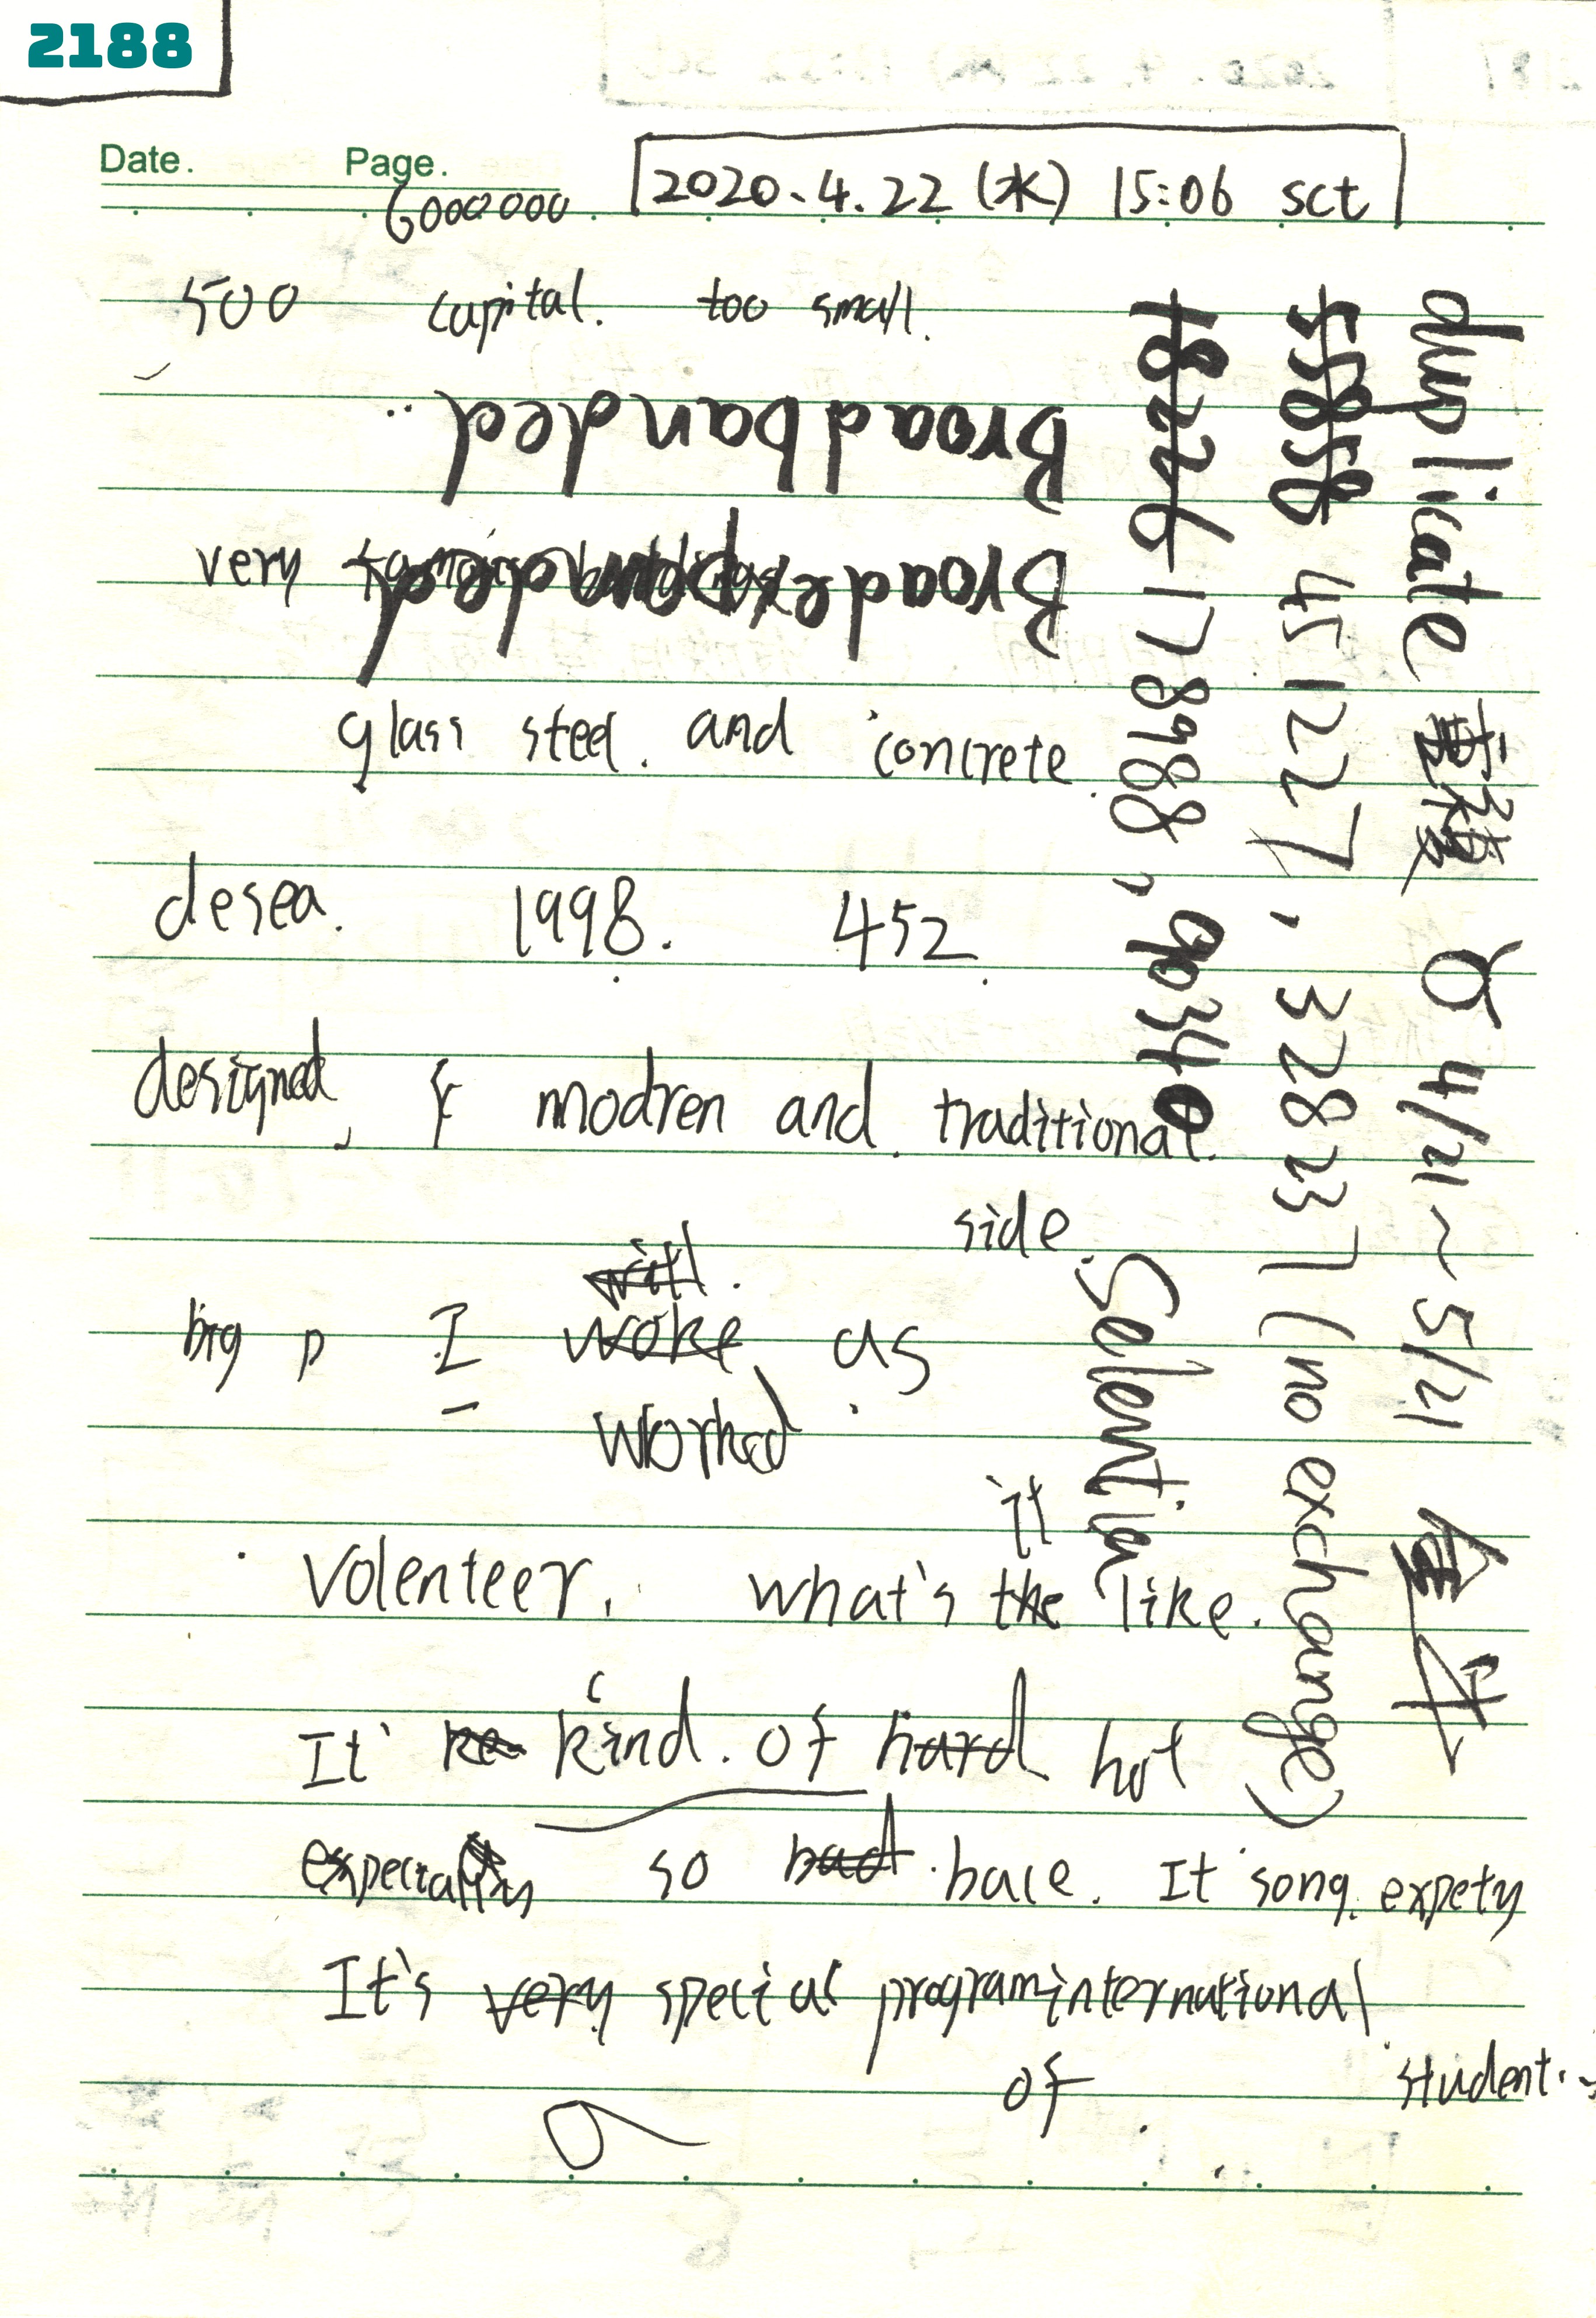 2188
Date. Page.
6000000
2020.4.22 (水) 15:06 sct
500 capital. too small.
Broadbanded
very famous buildings
Broadexpanded
glass steel. and concrete.
desea. 1998. 452.
designed, & modren and traditional.
side.
will.
big p I woke as
worked
it
Volenteer. what's the like.
It' ke kind. of hard hot
especially so bad. bace. It song. expety
It's very special program international
of student.
duplicate 重複 ♉ 4/21~5/21 金牛
5858 45127, 328237 (no exchange)
18226 178988, 90340 Selentia